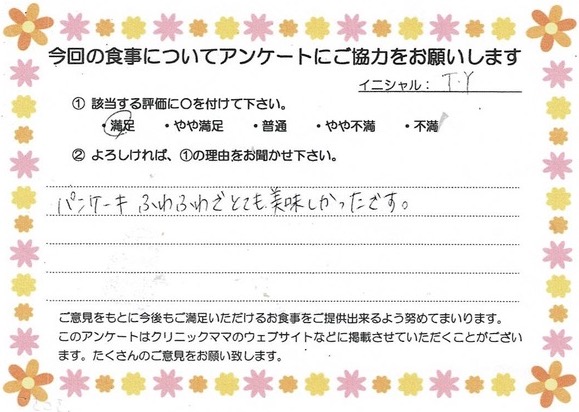 今回の食事についてアンケートにご協力をお願いします
イニシャル： T.Y
① 該当する評価に〇を付けて下さい。
・満足 ・やや満足 ・普通 ・やや不満 ・不満
② よろしければ、①の理由をお聞かせ下さい。
パンケーキ ふわふわでとても美味しかったです。
ご意見をもとに今後もご満足いただけるお食事をご提供出来るよう努めてまいります。
このアンケートはクリニックママのウェブサイトなどに掲載させていただくことがござい
ます。たくさんのご意見をお願い致します。